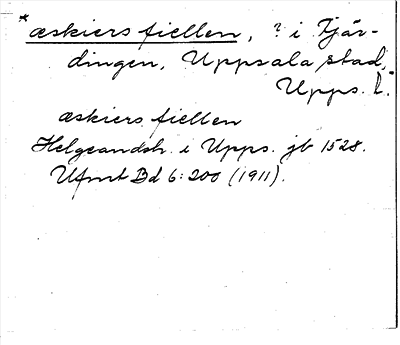 *æskiers fiellen, ? i Fjär-
dingen, Uppsala stad,
Upps. l.
æskiers fiellen
Helgeandsh. i Upps. jb 1528.
Ufmt Bd 6:200 (1911).